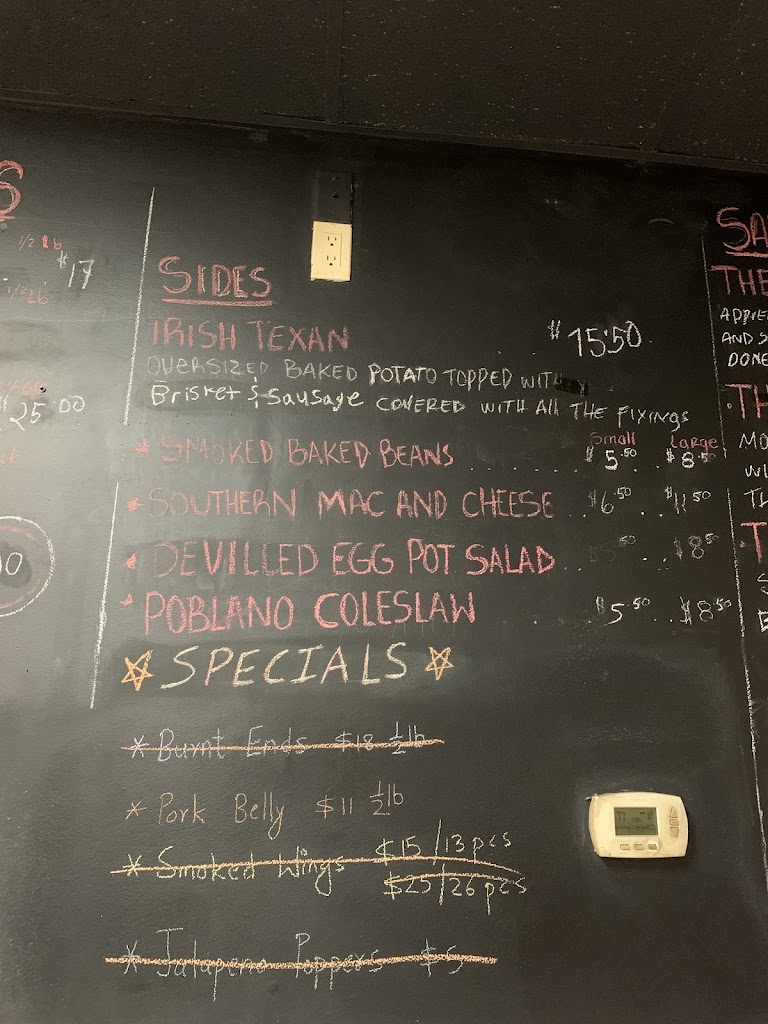 1/2 lb
$17
1/2 lb
$25.00
SIDES
IRISH TEXAN $15.50
OVERSIZED BAKED POTATO TOPPED WITH
Brisket & Sausage COVERED WITH All THE FIXINGS
Small Large
* SMOKED BAKED BEANS $5.50 $8.50
* SOUTHERN MAC AND CHEESE $6.50 $11.50
* DEVILLED EGG POT SALAD .50 $8.50
* POBLANO COLESLAW $5.50 $8.50
SPECIALS
* Burnt Ends $18 1/2 lb
* Pork Belly $11 1/2 lb
* Smoked Wings $15/13 pcs
$25/26 pcs
* Jalapeno Poppers $5
SA
THE
AND S
DONE
TH
MO
WI
TH
T
77